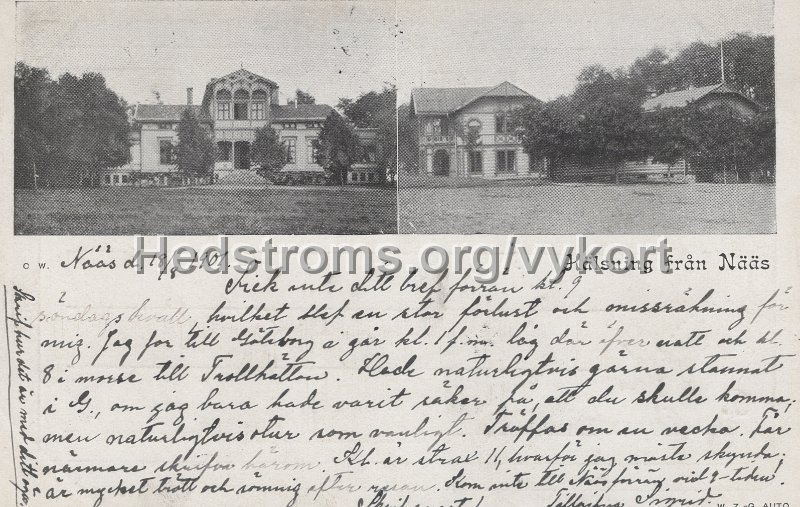 Hedstroms.org/vykort
C W.
Nääs d. 19/8 1901
Hälsning från Nääs
Fick inte ditt bref förrän kl. 9
söndagskväll, hvilket blef en stor förlust och missräkning för
mig. Jag for till Göteborg i går kl. 1 f.m. låg där öfver natt och kl.
8 i morse till Trollhättan. Hade naturligtvis gärna stannat
i G., om jag bara hade varit säker på, att du skulle komma,
men naturligtvis otur som vanligt. Träffas om en vecka. Får
närmare skrifva härom. Kl. är strax 11, hvarför jag måste skynda;
är mycket trött och sömnig efter resan. Kom inte till Nääs förrän vid 9-tiden!
Skrif snart! Tillgifna Sigrid.
W. Z.-G. AUTO
Skrif hur det är med ditt öga.